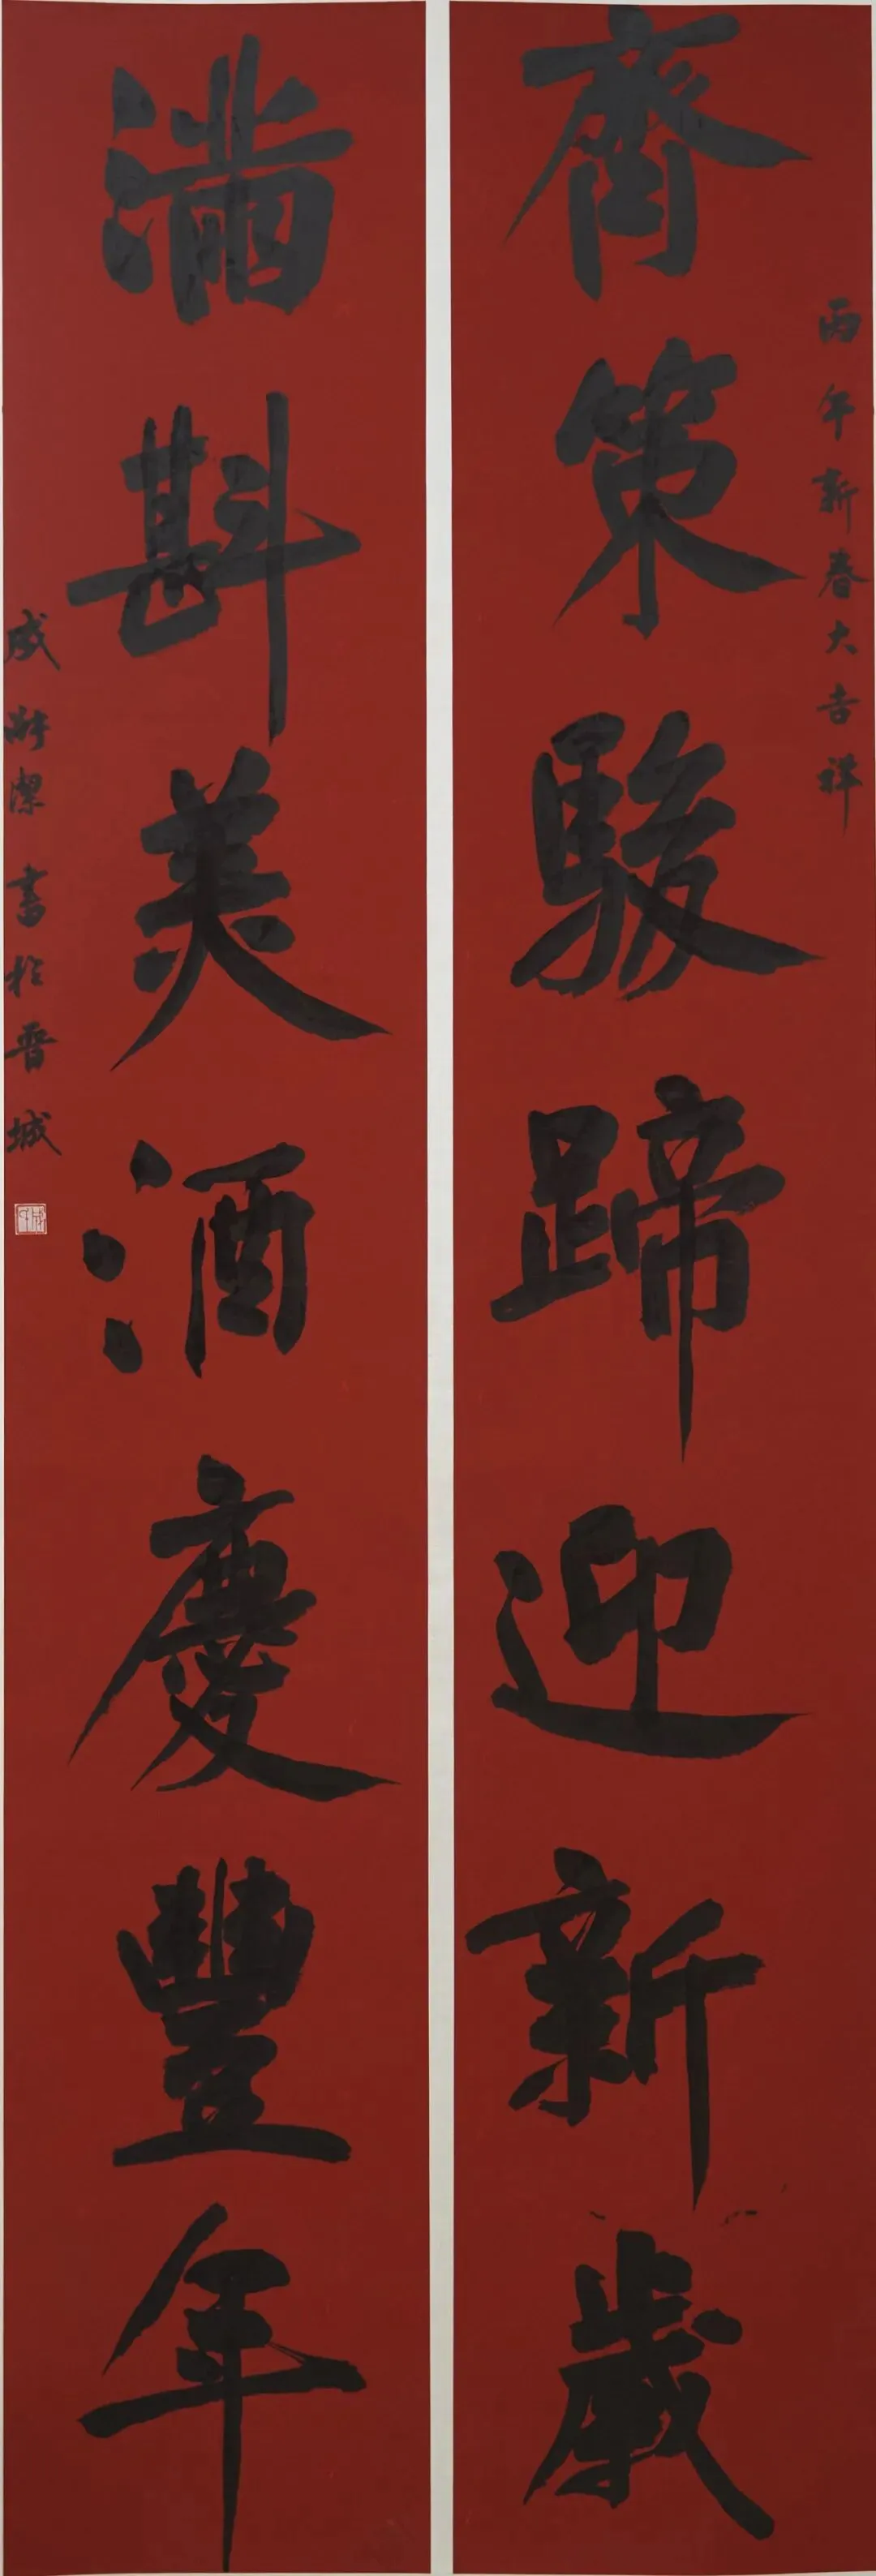 丙午新春大吉祥
齊策駿蹄迎新歲
滿斟美酒慶豐年
成
潔書於晉城